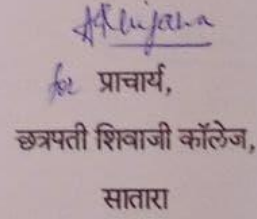 for प्राचार्य,
छत्रपती शिवाजी कॉलेज,
सातारा